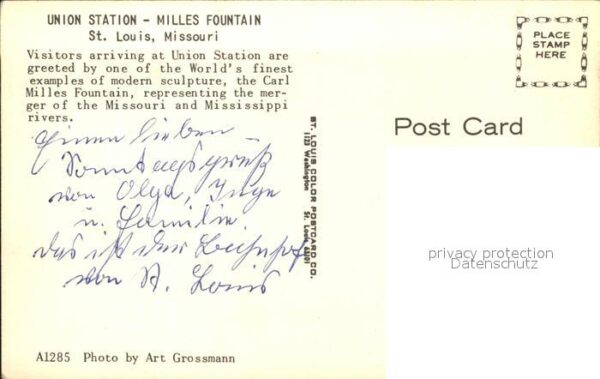 UNION STATION - MILLES FOUNTAIN
St. Louis, Missouri
Visitors arriving at Union Station are
greeted by one of the World's finest
examples of modern sculpture, the Carl
Milles Fountain, representing the mer-
ger of the Missouri and Mississippi
rivers.
Einen lieben
Sonntagsgruß
von Olga, Inge
u. Familie.
das ist der Bahnhof
von St. Louis
A1285 Photo by Art Grossmann
ST. LOUIS COLOR POSTCARD CO.
1123 Washington St. Louis, 63101
PLACE
STAMP
HERE
Post Card
privacy protection
Datenschutz